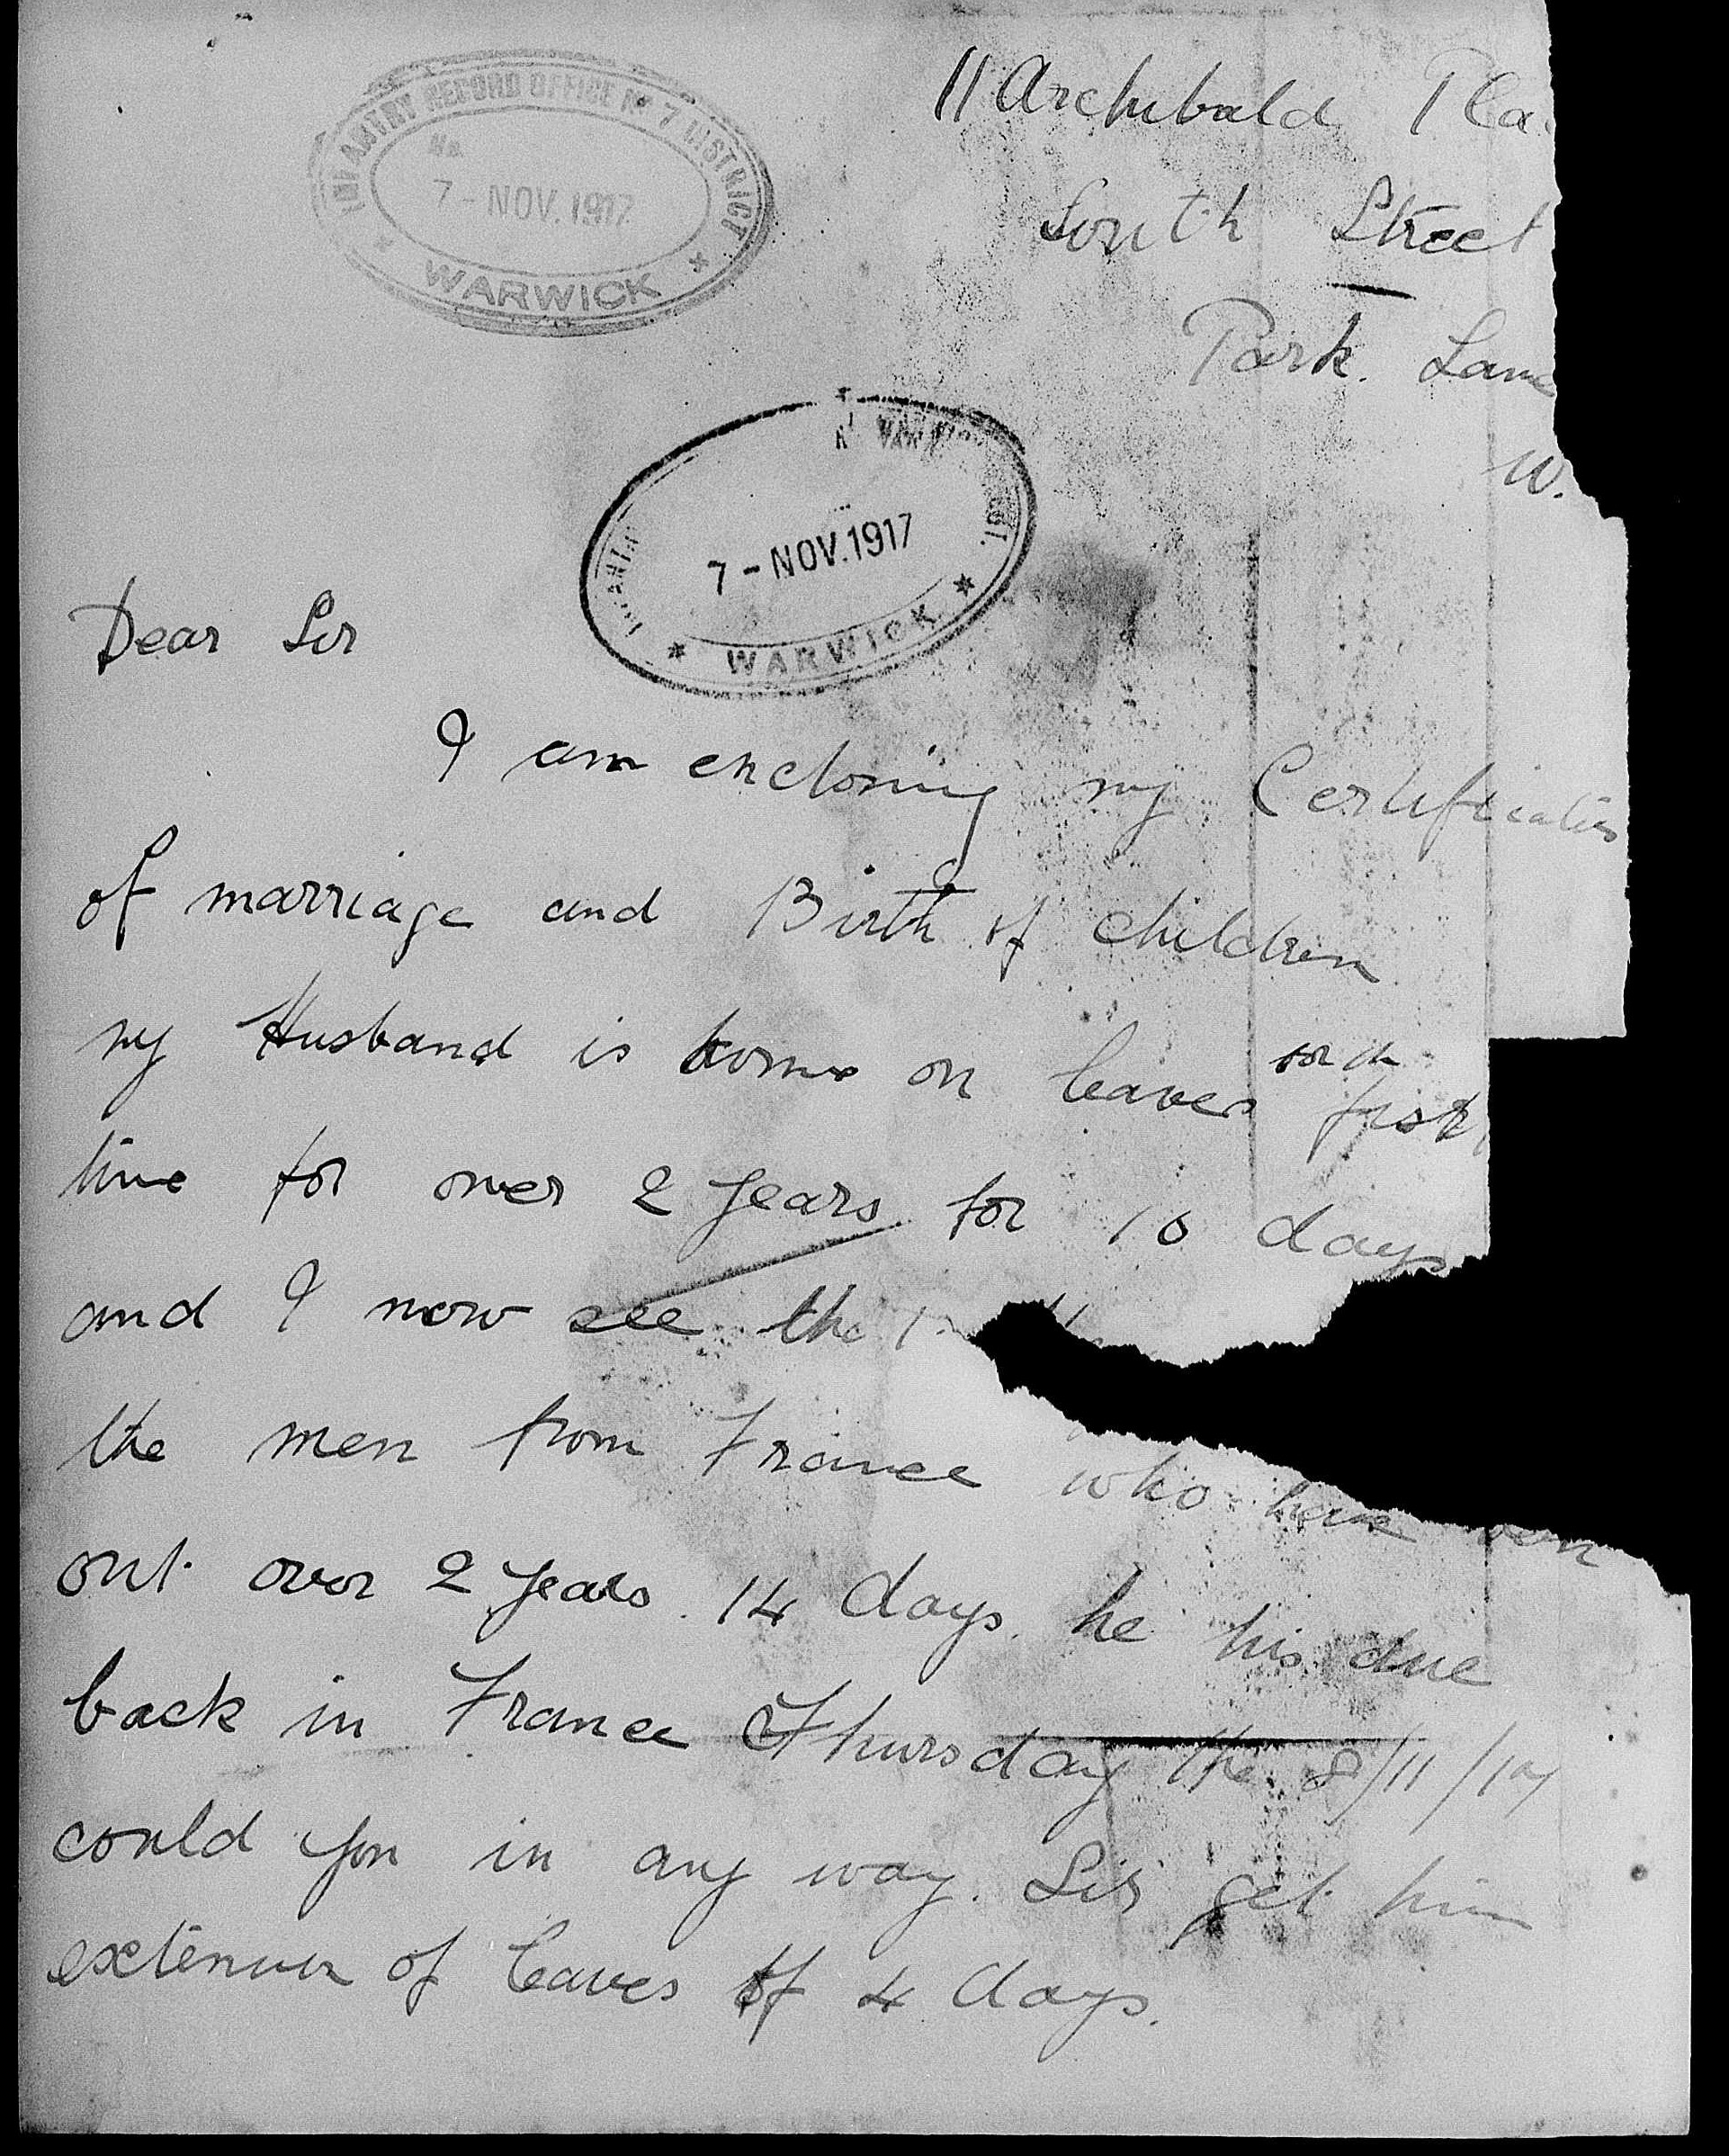 11 Archibald Pla
South Street
Park. Lane
W.
INFANTRY RECORD OFFICE No 7 DISTRICT
No.
7 - NOV. 1917
WARWICK
7 - NOV. 1917
WARWICK
Dear Sir
I am enclosing my Certificates
of marriage and Birth of children
my Husband is home on leaves for the first
time for over 2 years for 10 days
and I now see the
the men from France who have been
out over 2 years 14 days. he his due
back in France Thursday the 8/11/17
could you in any way. Sir get him
extension of leaves of 4 days.